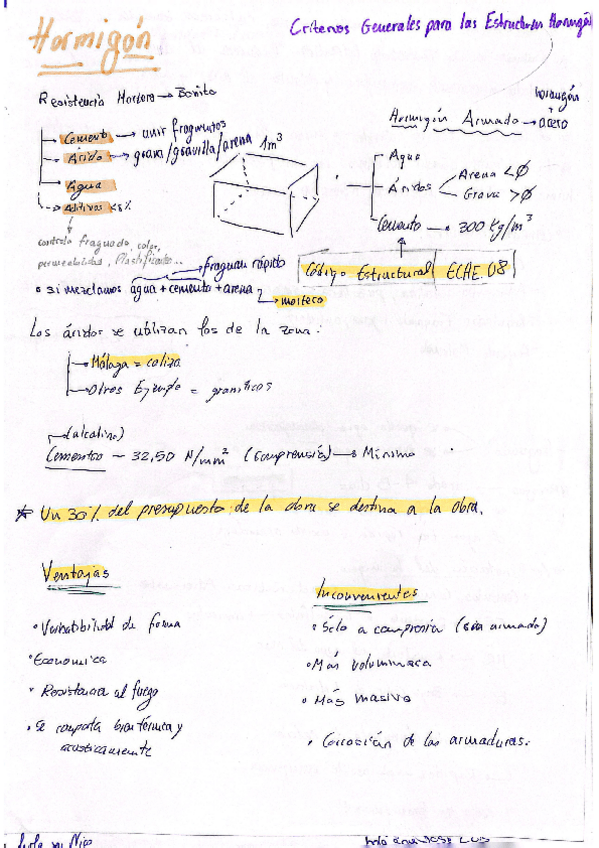 Criterios Generales para las Estructuras Hormigón
Hormigón
Resistencia Mortero → Bonito
hormigón
+
Hormigón Armado → acero
Cemento → unir fragmentos
Árido → grava/gravilla/arena
1m³
Agua
Aditivos <5%
Agua
Áridos
Arena <Ø
Grava >Ø
Cemento → 300 Kg/m³
controla fraguado, color,
permeabilidad, Plastificante...
Código Estructural | ECAE.08
fraguan rápido
• Si mezclamos agua + cemento + arena
mortero
Los áridos se utilizan los de la zona:
Málaga = caliza
Otros Ejemplo = graníticos
(alcalino)
Cemento ~ 32,50 N/mm² (Compresión) → Mínimo
* Un 30% del presupuesto de la obra se destina a la obra.
Ventajas
Inconvenientes
• Versatibilidad de forma
• Sólo a compresión (sin armado)
• Economica
• Más voluminosa
• Resistencia al fuego
• Más masivo
• Se comporta bien térmica y
acústicamente
• Corrosión de las armaduras.